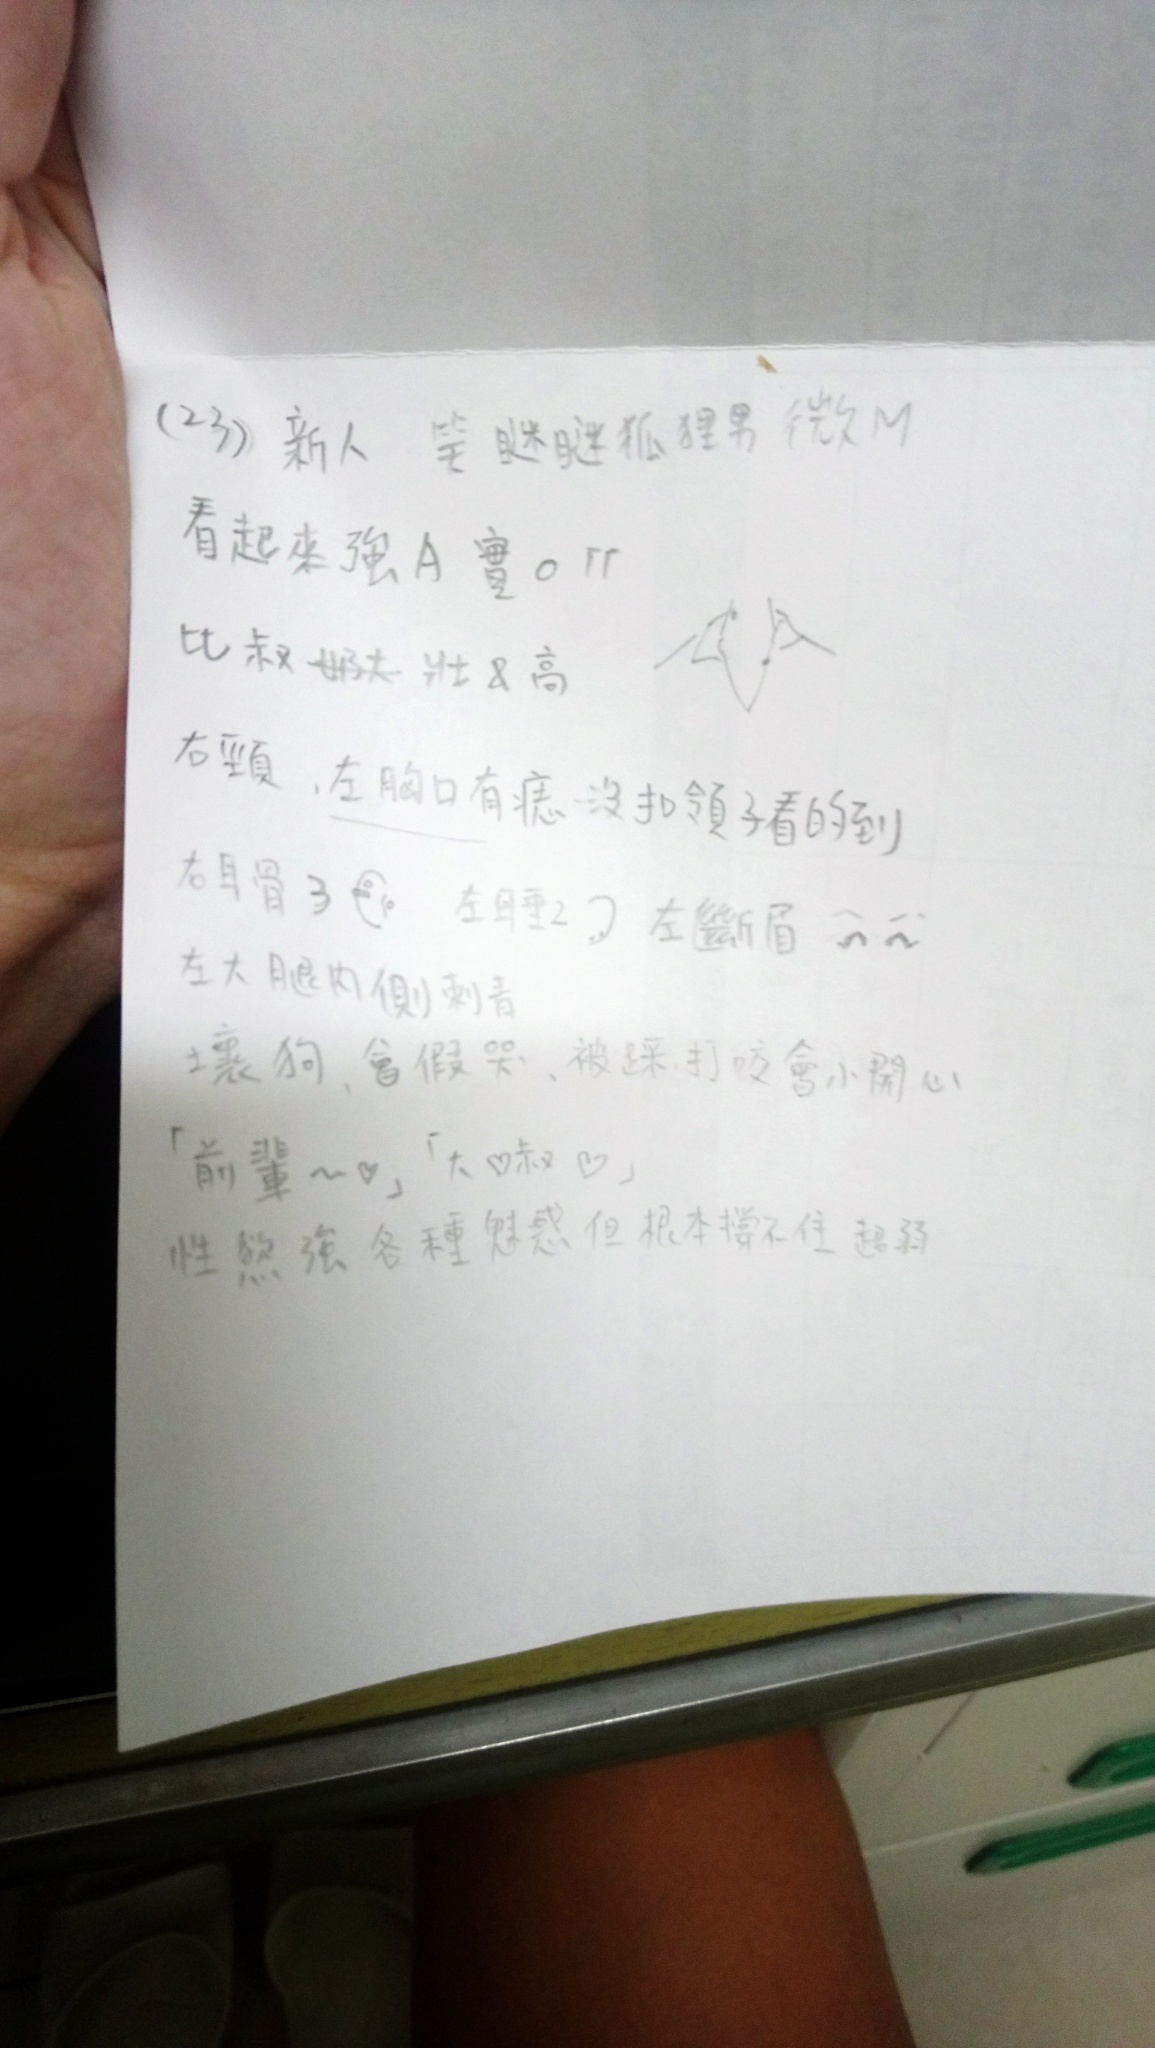 (23) 新人 笑瞇瞇狐狸男 微M
看起來強A 實O
比叔 壯&高
右頸、左胸口有痣 沒扣領子看的到
右耳骨3 左耳垂2 左斷眉
左大腿內側刺青
壞狗、會假哭、被踩.打咬會小開心
「前輩~♡」「大♡叔♡」
性慾強各種魅惑但根本撐不住 超弱